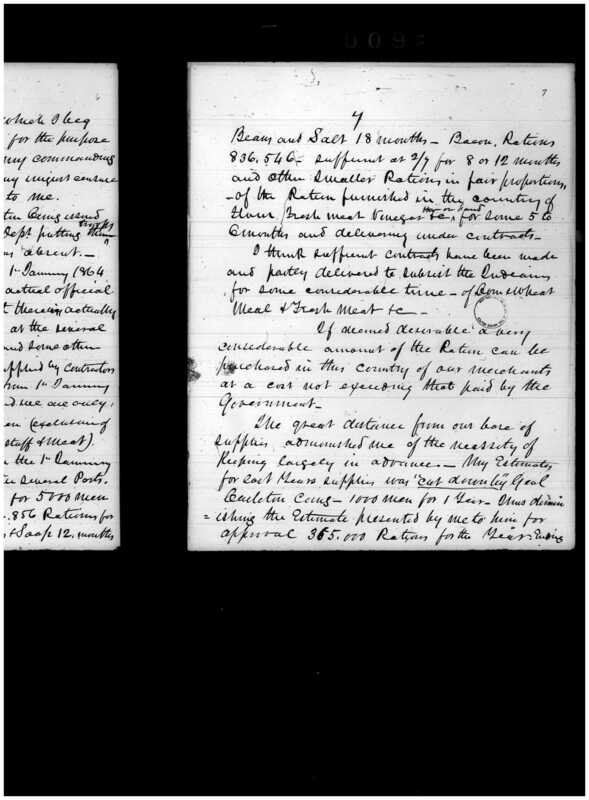 which I beg
for the purpose
my commanding
to me.
being issued
Dept putting troops
as "absent. —
1st January 1864
actual official
at the several
and some other
supplied by contractors
from 1st January
and we are only
(exclusive of
Staff & Meat)
the 1st January
several Posts.
for 5000 men
856 Rations for
& Soap 12. months
7
4
Beans and Salt 18 months — Bacon, Rations
836.546 — sufficient at 2/7 for 8 or 12 months
and other smaller Rations in fair proportions,
— of the Ration furnished in the country of
Flour, Fresh meat Vinegar &c, Hay on hand for some 5 to
6 months and delivering under contracts —
I think sufficient contracts have been made
and partly delivered to subsist the Indians
for some considerable time — of Corn Wheat
Meal & Fresh Meat &c —
If deemed desirable a very
considerable amount of the Ration can be
purchased in this country of our merchants
at a cost not exceeding that paid by the
Government —
The great distance from our base of
supplies, admonished me of the necessity of
Keeping largely in advance — My Estimates
for last Years supplies was "cut down by Genl
Carleton Comg — 1000 men for 1 Year — thus dimin
= ishing the Estimate presented by me to him for
approval 365.000 Rations for the Year Ending